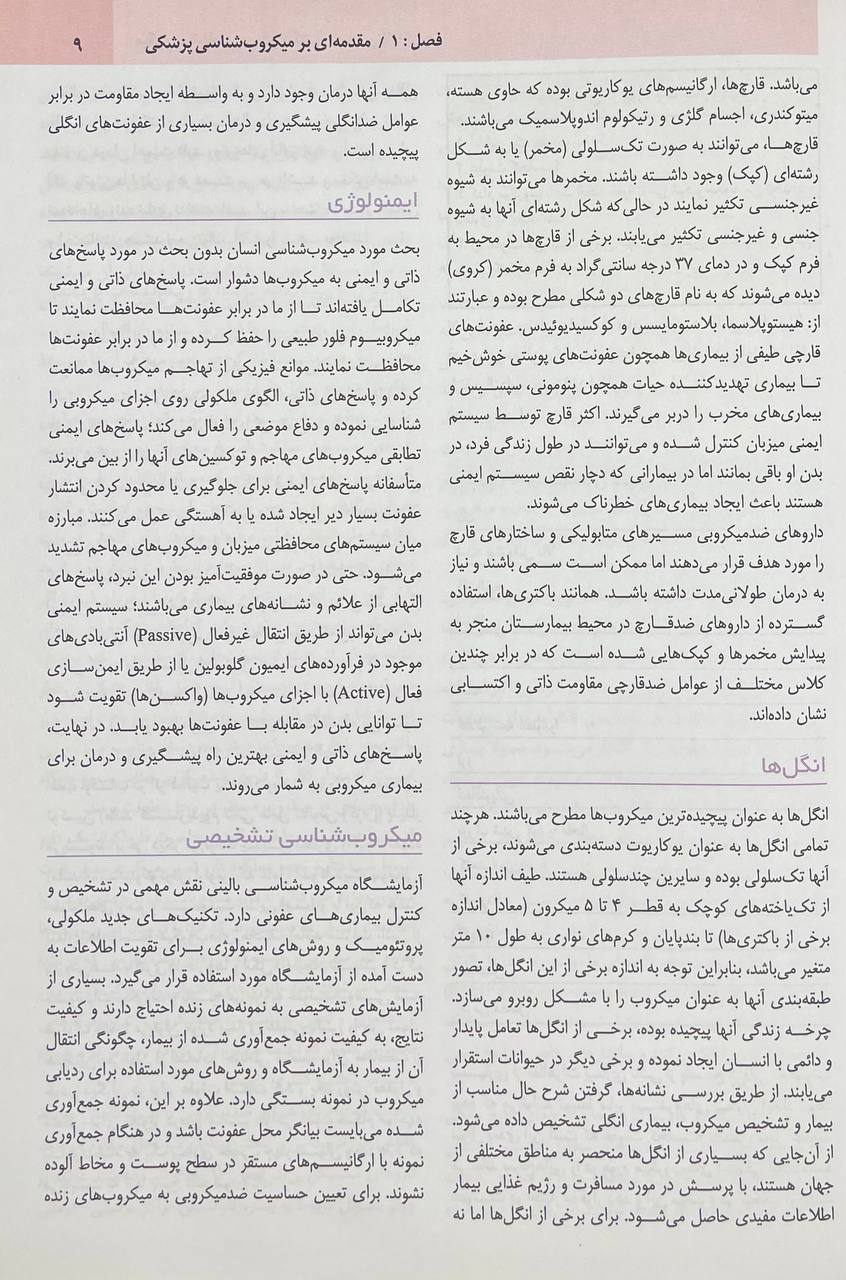 فصل: ۱ / مقدمه‌ای بر میکروب‌شناسی پزشکی ۹
می‌باشد. قارچ‌ها، ارگانیسم‌های یوکاریوتی بوده که حاوی هسته،
میتوکندری، اجسام گلژی و رتیکولوم اندوپلاسمیک می‌باشند.
قارچ‌ها، می‌توانند به صورت تک‌سلولی (مخمر) یا به شکل
رشته‌ای (کپک) وجود داشته باشند. مخمرها می‌توانند به شیوه
غیرجنسی تکثیر نمایند در حالی‌که شکل رشته‌ای آنها به شیوه
جنسی و غیرجنسی تکثیر می‌یابند. برخی از قارچ‌ها در محیط به
فرم کپک و در دمای ۳۷ درجه سانتی‌گراد به فرم مخمر (کروی)
دیده می‌شوند که به نام قارچ‌های دو شکلی مطرح بوده و عبارتند
از: هیستوپلاسما، بلاستومایسس و کوکسیدیوئیدس. عفونت‌های
قارچی طیفی از بیماری‌ها همچون عفونت‌های پوستی خوش‌خیم
تا بیماری تهدیدکننده حیات همچون پنومونی، سپسیس و
بیماری‌های مخرب را دربر می‌گیرند. اکثر قارچ توسط سیستم
ایمنی میزبان کنترل شده و می‌توانند در طول زندگی فرد، در
بدن او باقی بمانند اما در بیمارانی که دچار نقص سیستم ایمنی
هستند باعث ایجاد بیماری‌های خطرناک می‌شوند.
داروهای ضدمیکروبی مسیرهای متابولیکی و ساختارهای قارچ
را مورد هدف قرار می‌دهند اما ممکن است سمی باشند و نیاز
به درمان طولانی‌مدت داشته باشد. همانند باکتری‌ها، استفاده
گسترده از داروهای ضدقارچ در محیط بیمارستان منجر به
پیدایش مخمرها و کپک‌هایی شده است که در برابر چندین
کلاس مختلف از عوامل ضدقارچی مقاومت ذاتی و اکتسابی
نشان داده‌اند.
انگل‌ها
انگل‌ها به عنوان پیچیده‌ترین میکروب‌ها مطرح می‌باشند. هرچند
تمامی انگل‌ها به عنوان یوکاریوت دسته‌بندی می‌شوند، برخی از
آنها تک‌سلولی بوده و سایرین چندسلولی هستند. طیف اندازه آنها
از تک‌یاخته‌های کوچک به قطر ۴ تا ۵ میکرون (معادل اندازه
برخی از باکتری‌ها) تا بندپایان و کرم‌های نواری به طول ۱۰ متر
متغیر می‌باشد، بنابراین توجه به اندازه برخی از این انگل‌ها، تصور
طبقه‌بندی آنها به عنوان میکروب را با مشکل روبرو می‌سازد.
چرخه زندگی آنها پیچیده بوده، برخی از انگل‌ها تعامل پایدار
و دائمی با انسان ایجاد نموده و برخی دیگر در حیوانات استقرار
می‌یابند. از طریق بررسی نشانه‌ها، گرفتن شرح حال مناسب از
بیمار و تشخیص میکروب، بیماری انگلی تشخیص داده می‌شود.
از آن‌جایی که بسیاری از انگل‌ها منحصر به مناطق مختلفی از
جهان هستند، با پرسش در مورد مسافرت و رژیم غذایی بیمار
اطلاعات مفیدی حاصل می‌شود. برای برخی از انگل‌ها اما نه
همه آنها درمان وجود دارد و به واسطه ایجاد مقاومت در برابر
عوامل ضدانگلی پیشگیری و درمان بسیاری از عفونت‌های انگلی
پیچیده است.
ایمنولوژی
بحث مورد میکروب‌شناسی انسان بدون بحث در مورد پاسخ‌های
ذاتی و ایمنی به میکروب‌ها دشوار است. پاسخ‌های ذاتی و ایمنی
تکامل یافته‌اند تا از ما در برابر عفونت‌ها محافظت نمایند تا
میکروبیوم فلور طبیعی را حفظ کرده و از ما در برابر عفونت‌ها
محافظت نمایند. موانع فیزیکی از تهاجم میکروب‌ها ممانعت
کرده و پاسخ‌های ذاتی، الگوی ملکولی روی اجزای میکروبی را
شناسایی نموده و دفاع موضعی را فعال می‌کند؛ پاسخ‌های ایمنی
تطابقی میکروب‌های مهاجم و توکسین‌های آنها را از بین می‌برند.
متأسفانه پاسخ‌های ایمنی برای جلوگیری یا محدود کردن انتشار
عفونت بسیار دیر ایجاد شده یا به آهستگی عمل می‌کنند. مبارزه
میان سیستم‌های محافظتی میزبان و میکروب‌های مهاجم تشدید
می‌شود. حتی در صورت موفقیت‌آمیز بودن این نبرد، پاسخ‌های
التهابی از علائم و نشانه‌های بیماری می‌باشند؛ سیستم ایمنی
بدن می‌تواند از طریق انتقال غیرفعال (Passive) آنتی‌بادی‌های
موجود در فرآورده‌های ایمیون گلوبولین یا از طریق ایمن‌سازی
فعال (Active) با اجزای میکروب‌ها (واکسن‌ها) تقویت شود
تا توانایی بدن در مقابله با عفونت‌ها بهبود یابد. در نهایت،
پاسخ‌های ذاتی و ایمنی بهترین راه پیشگیری و درمان برای
بیماری میکروبی به شمار می‌روند.
میکروب‌شناسی تشخیصی
آزمایشگاه میکروب‌شناسی بالینی نقش مهمی در تشخیص و
کنترل بیماری‌های عفونی دارد. تکنیک‌های جدید ملکولی،
پروتئومیک و روش‌های ایمنولوژی برای تقویت اطلاعات به
دست آمده از آزمایشگاه مورد استفاده قرار می‌گیرد. بسیاری از
آزمایش‌های تشخیصی به نمونه‌های زنده احتیاج دارند و کیفیت
نتایج، به کیفیت نمونه جمع‌آوری شده از بیمار، چگونگی انتقال
آن از بیمار به آزمایشگاه و روش‌های مورد استفاده برای ردیابی
میکروب در نمونه بستگی دارد. علاوه بر این، نمونه جمع‌آوری
شده می‌بایست بیانگر محل عفونت باشد و در هنگام جمع‌آوری
نمونه با ارگانیسم‌های مستقر در سطح پوست و مخاط آلوده
نشوند. برای تعیین حساسیت ضدمیکروبی به میکروب‌های زنده